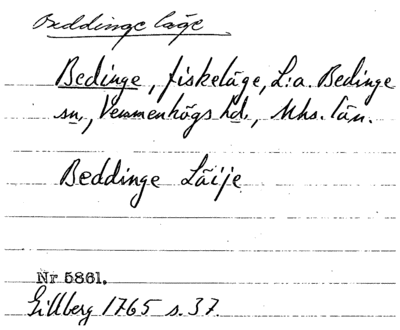 Beddinge läge
Bedinge, fiskeläge, L:a. Bedinge
sn., Vemmenhögs hd., Mhs. län.
Beddinge Läije
Nr 5861.
Gillberg 1765 s. 37.